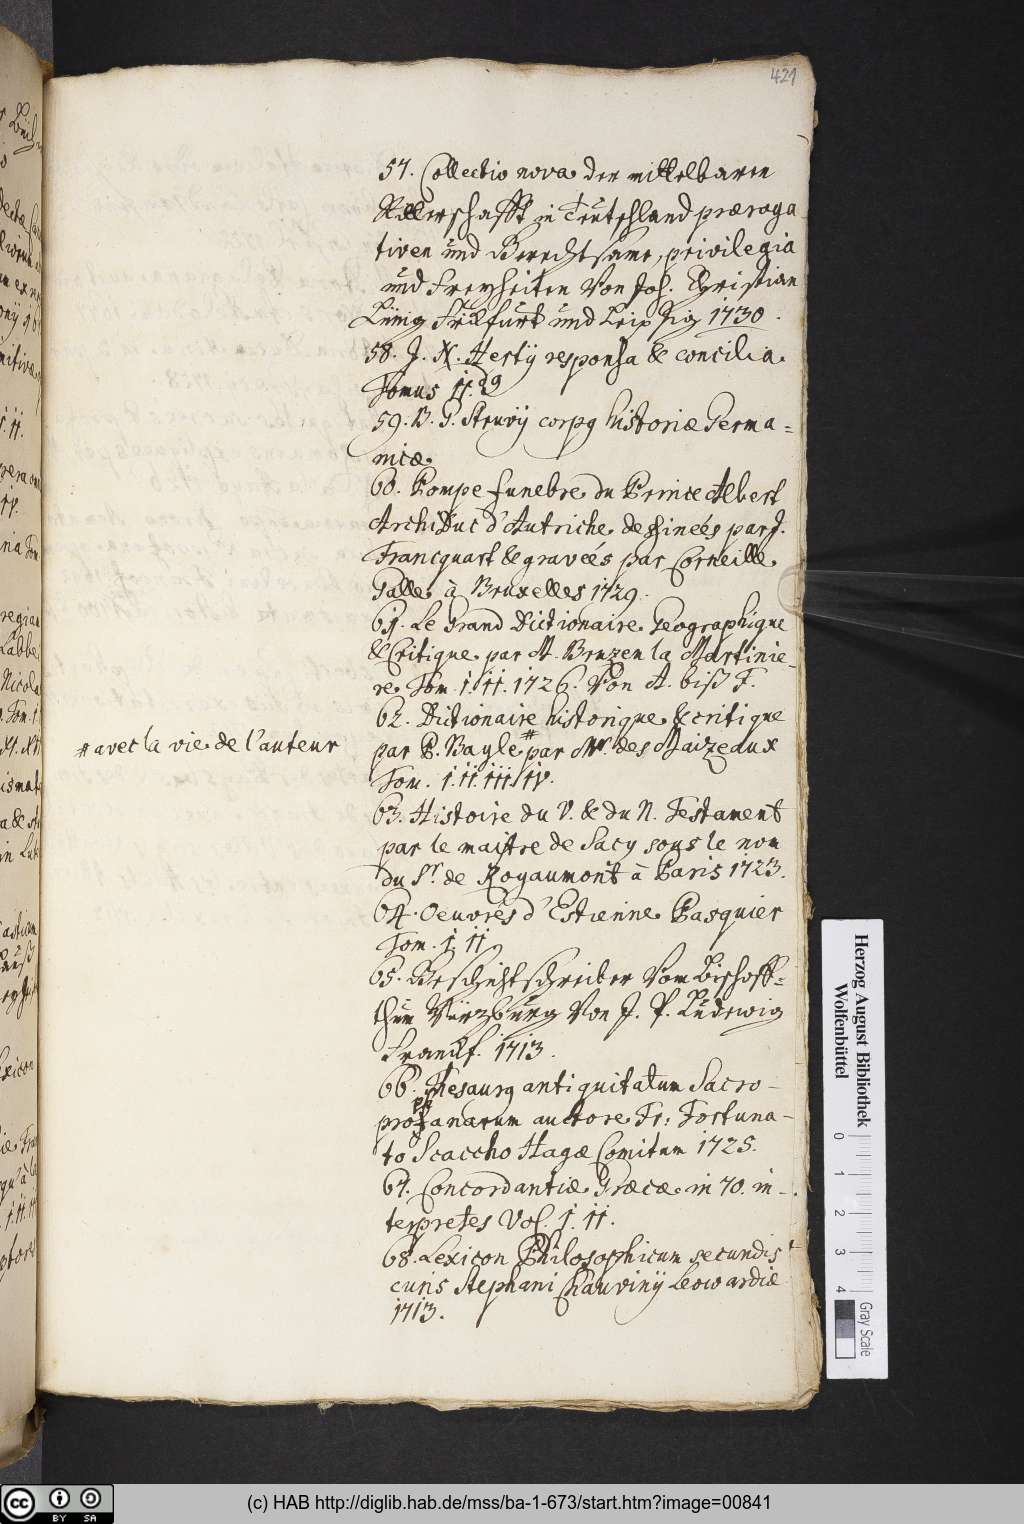 421
57. Collectio nova der mittelbaren
Ritterschafft in Teutschland præroga
tiven und Gerechtsame, privilegia
und Freyheiten von Joh. Christian
Lünig Frkfurt und Leipzig 1730.
58. J. N. Hertij responsa & concilia
Tomus II.dg
59. B. G. Struvij corpg historiæ Germa=
nicæ
60. Pompe funebre du Prince Albert
Archiduc d'Autriche dessineés par J.
Francquart & gravées par Corneille
Galle à Bruxelles 1729.
61. Le Grand Dictionaire Geographique
& Critique par M. Bruzen la Martinie-
re Tom. I. II. 1726. Von A. biß F.
62. Dictionaire historique & critique
# avec la vie de l'auteur
par P. Bayle # par Mr. des Maizeaux
Tom. I. II. III. IV.
63. Histoire du V. & du N. Testament
par le maistre de Sacy sous le nom
du Sr. de Royaumont à Paris 1723.
64. Oeuvres d'Estienne Pasquier
Tom. I. II.
65. Geschichtschreiber vom Bischoff=
thum Würzburg von J. P. Ludewig
Franckf. 1713.
66. Thesaurg antiquitatum Sacro-
profanarum auctore Fr: Fortuna-
to Scaccho Hagæ Comitum 1725.
67. Concordantiæ Græcæ in 70. in-
terpretes Vol. I. II.
68. Lexicon Philosophicum secundis
curis Stephani Chauvinij Leowardiæ
1713.
Herzog August Bibliothek
Wolfenbüttel
0 1 2 3 4
Gray Scale
(c) HAB http://diglib.hab.de/mss/ba-1-673/start.htm?image=00841
cc BY SA